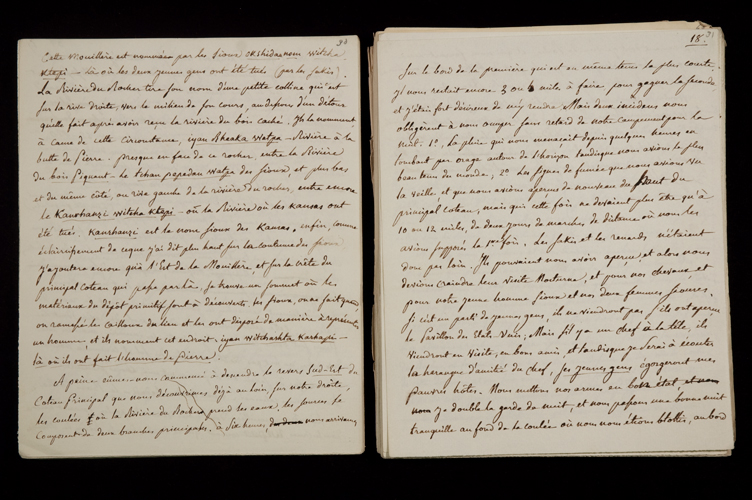 33
Cette Mouillère est nommée par les Sioux Okshidankom witcha
Ktepi – là où les deux jeunes gens ont été tués (par les Sakis).
La Rivière du Rocher tire son nom d'une petite colline qui est
sur la rive droite, vers le milieu de son cours, au dessous d'un détour
qu'elle fait après avoir reçu la rivière du bois caché. Ils la nomment
à cause de cette circonstance, iyan Rheaka watpa – Rivière à la
butte de Pierre. Presque en face de ce rocher, entre la Rivière
du bois Piquent. le tchan pepedan watpa des Sioux, et plus bas
et du même côté, ou rive gauche de la rivière du rocher, entre encore
le Kanshanzi witcha Ktepi – où la Rivière où les Kansas ont
été tués. Kanshanzi est le nom Sioux des Kansas, enfin, comme
éclaircissement de ce que j'ai dit plus haut sur les coutumes des Sioux
j'ajouterai encore qu'à l'Est de la Mouillère, et sur la crête du
principal coteau qui passe par là, se trouve un sommet où les
matériaux du dépôt primitif sont à découvert. les Sioux, on a fait
ou ramassé les cailloux du lieu et les ont disposé de manière à représenter
un homme, et ils nomment cet endroit, iyan witchashta Karhapi –
là où ils ont fait l'homme de Pierre
A peine eûmes-nous commencé à descendre le revers Sud-Est du
Coteau Principal que nous découvrimes déjà au loin, sur notre droite,
les coulées où la Rivière du Rocher prend ses eaux, les sources se
composent de deux branches principales. à six heures, nous arrivions
18.
31
sur le bord de la première qui est en même tems la plus courte.
il nous restait encore 5 ou 6 mils à faire pour gagner la seconde
et j'étais fort désireux de m'y rendre. Mais deux incidens nous
obligèrent à nous occuper sans retard de notre campement pour la
nuit: 1°, la pluie qui nous menaçait depuis quelques heures en
tombant par orage autour de l'horizon tandisque nous avions le plus
beau tems du monde, 2° les signes de fumée que nous avions vu
la veille et que nous avions aperçus de nouveau du haut du
principal coteau, mais qui cette fois ne devaient plus être qu'à
10 ou 12 miles, de deux jours de marches de distance où nous les
avions supposés la 1ère fois. Les Sakis et les renards n'étaient
donc pas loin. Ils pouvaient nous avoir aperçu, et alors nous
devions craindre leur visite Nocturne, et pour nos chevaux et
pour notre jeune homme Sioux et nos deux femmes Sioux.
si c'est un parti de jeunes gens, ils ne viendront pas s'ils ont aperçu
le Pavillon des Etats-Unis; Mais s'il y a un chef à la tête, ils
viendront en visite, en bons amis, et tandisque je serai à écouter
la harangue d'amitié du chef, ses jeunes gens égorgeront mes
pauvres hôtes. Nous mettons nos armes en bon état, et nous
nous je double la garde de nuit, et nous passons une bonne nuit
tranquille au fond de la coulée où nous nous étions blottis, au bord